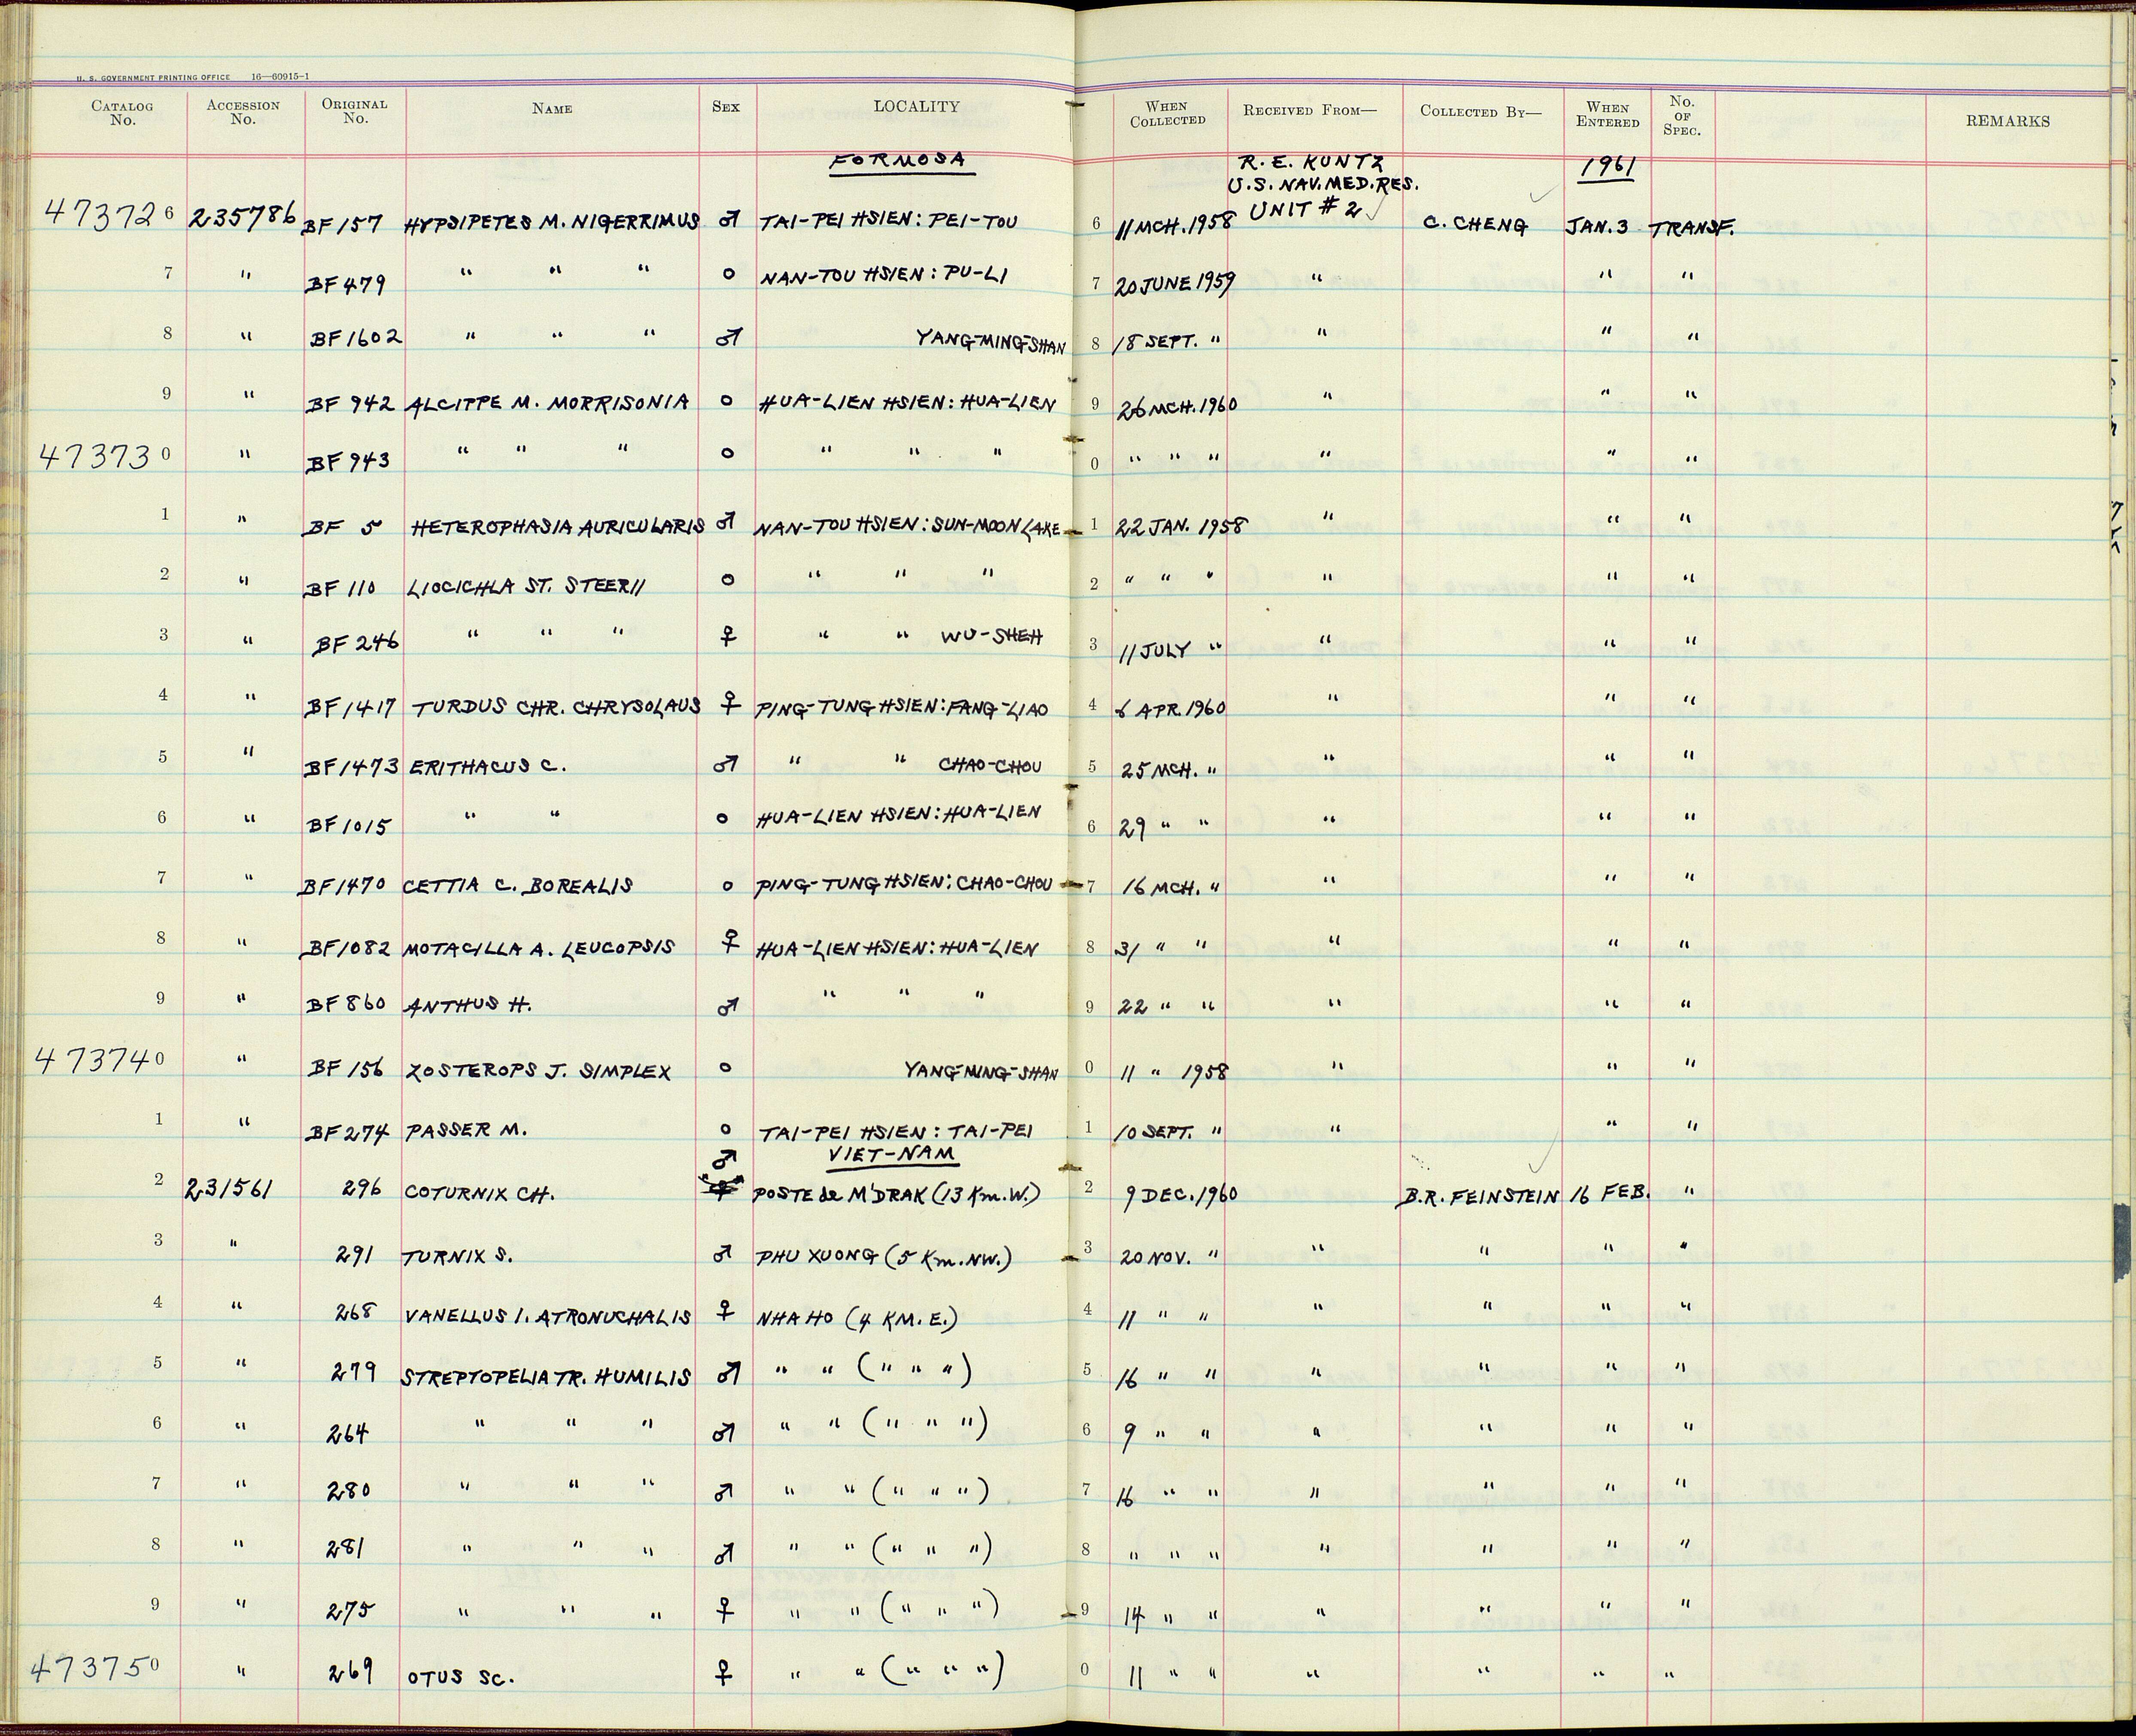 U. S. GOVERNMENT PRINTING OFFICE 16—60915-1
CATALOG No. ACCESSION No. ORIGINAL No. NAME SEX LOCALITY WHEN COLLECTED RECEIVED FROM— COLLECTED BY— WHEN ENTERED No. OF SPEC. REMARKS
FORMOSA R. E. KUNTZ 1961
U.S. NAV. MED. RES.
UNIT # 2 ✓
473726 235786 BF 157 HYPSIPETES M. NIGERRIMUS ♂ TAI-PEI HSIEN: PEI-TOU 6 11 MCH. 1958 C. CHENG JAN. 3 TRANSF.
7 " BF 479 " " " o NAN-TOU HSIEN: PU-LI 7 20 JUNE 1959 " " "
8 " BF 1602 " " " ♂ YANG-MING-SHAN 8 18 SEPT. " " " "
9 " BF 942 ALCIPPE M. MORRISONIA o HUA-LIEN HSIEN: HUA-LIEN 9 26 MCH. 1960 " " "
473730 " BF 943 " " " o " " " 0 " " " " " "
1 " BF 5 HETEROPHASIA AURICULARIS ♂ NAN-TOU HSIEN: SUN-MOON LAKE 1 22 JAN. 1958 " " "
2 " BF 110 LIOCICHLA ST. STEERII o " " " 2 " " " " " "
3 " BF 246 " " " ♀ " " WU-SHEH 3 11 JULY " " " "
4 " BF 1417 TURDUS CHR. CHRYSOLAUS ♀ PING-TUNG HSIEN: FANG-LIAO 4 6 APR. 1960 " " "
5 " BF 1473 ERITHACUS C. ♂ " " CHAO-CHOU 5 25 MCH. " " " "
6 " BF 1015 " " o HUA-LIEN HSIEN: HUA-LIEN 6 29 " " " " "
7 " BF 1470 CETTIA C. BOREALIS o PING-TUNG HSIEN: CHAO-CHOU 7 16 MCH. " " " "
8 " BF 1082 MOTACILLA A. LEUCOPSIS ♀ HUA-LIEN HSIEN: HUA-LIEN 8 31 " " " " "
9 " BF 860 ANTHUS H. ♂ " " " 9 22 " " " " "
473740 " BF 156 ZOSTEROPS J. SIMPLEX o YANG-MING-SHAN 0 11 " 1958 " " "
1 " BF 274 PASSER M. o TAI-PEI HSIEN: TAI-PEI 1 10 SEPT. " " " "
♂ VIET-NAM
2 231561 296 COTURNIX CH. POSTE de M'DRAK (13 Km. W.) 2 9 DEC. 1960 B.R. FEINSTEIN 16 FEB. "
3 " 291 TURNIX S. ♂ PHU XUONG (5 Km. NW.) 3 20 NOV. " " " " "
4 " 268 VANELLUS I. ATRONUCHALIS ♀ NHA HO (4 KM. E.) 4 11 " " " " " "
5 " 279 STREPTOPELIA TR. HUMILIS ♂ " " (" " ") 5 16 " " " " " "
6 " 264 " " " ♂ " " (" " ") 6 9 " " " " " "
7 " 280 " " " ♂ " " (" " ") 7 16 " " " " " "
8 " 281 " " " ♂ " " (" " ") 8 " " " " " " "
9 " 275 " " " ♀ " " (" " ") 9 14 " " " " " "
473750 " 269 OTUS SC. ♀ " " (" " ") 0 11 " " " " " "